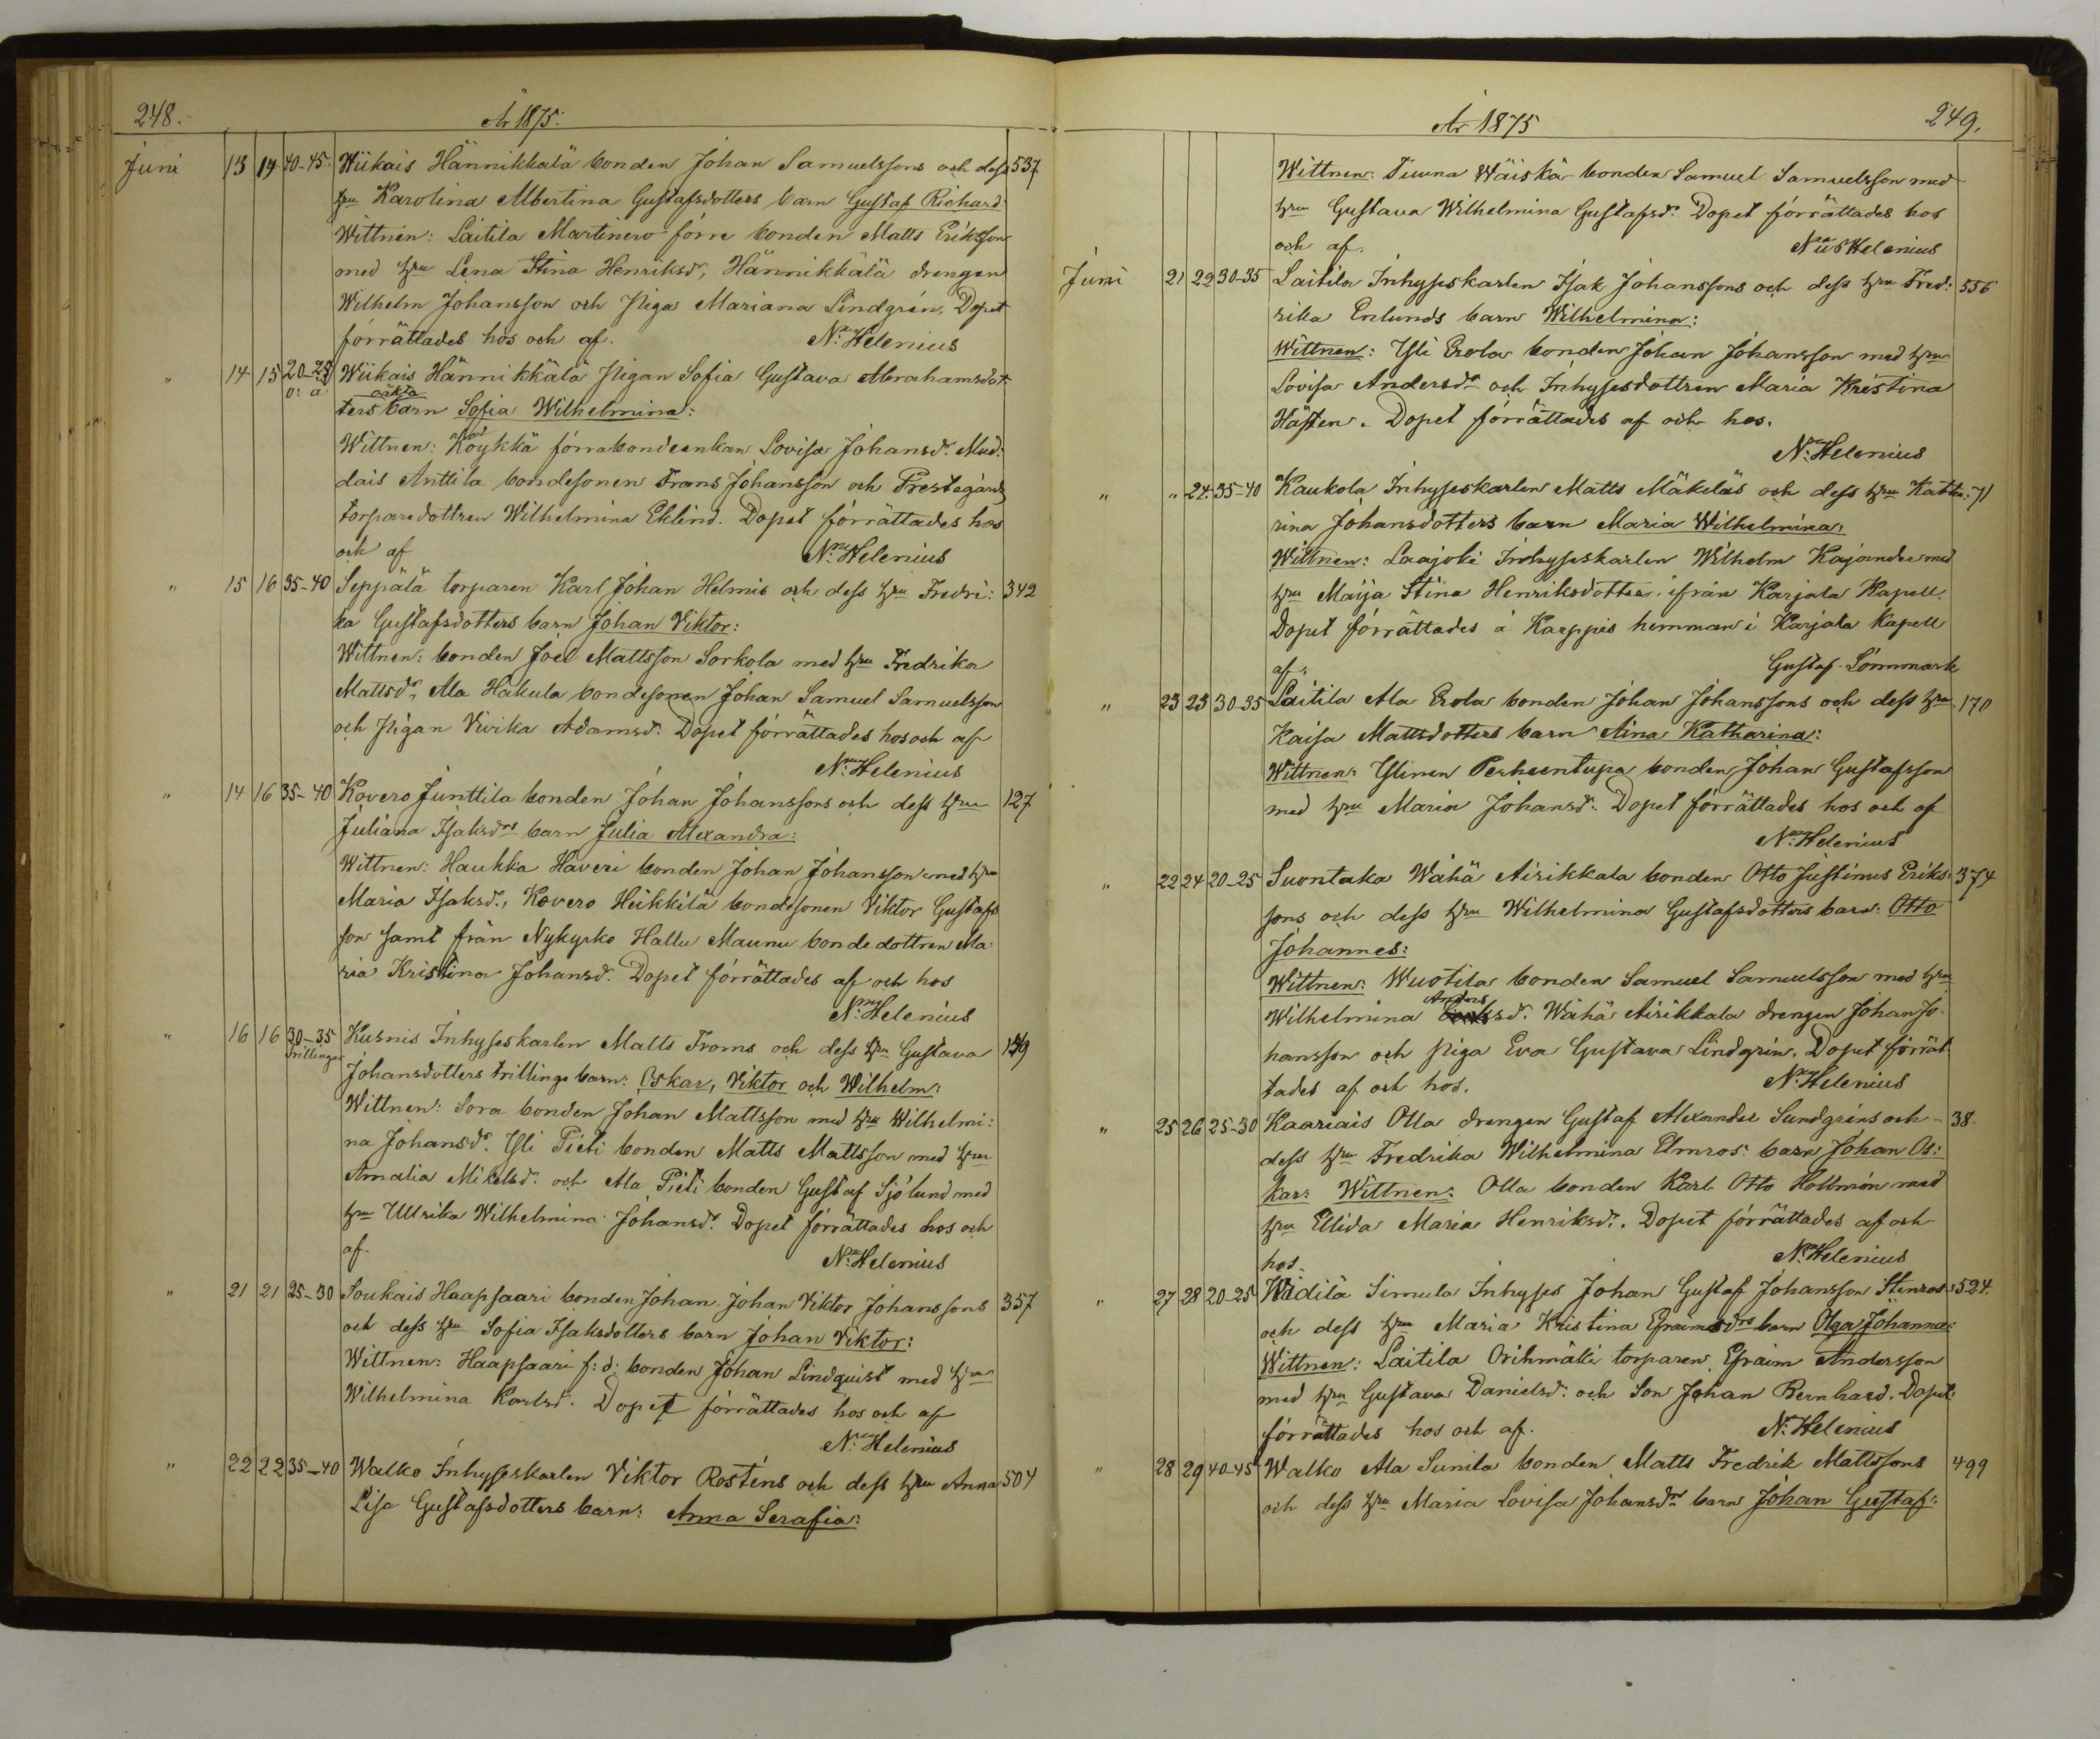 248.
År 1875:
Juni 13 14 40-45: Wiikais Hännikkälä bonden Johan Samuelssons och dess 537
hru Karolina Albertina Gustafsdotters barn Gustaf Richard:
Wittnen: Laitila Martinero förre bonden Matts Eriksson
med hru Lena Stina Henriksdr, Hännikkälä drengen
Wilhelm Johansson och Piga Mariana Lindgrén. Dopet
förrättades hos och af. N: Helenius
" 14 15 20-25 Wiikais Hännikkälä Pigan Sofia Gustava Abrahamsdot-
o: ä oäkta
ters barn Sofia Wilhelmina:
Wittnen: Köykkä förrabondeenkan Lovisa Johansdr. Mud:
dais Anttila bondesonen Frans Johansson och Prestegårds
torparedottren Wilhelmina Eklind. Dopet förrättades hos
och af N: Helenius
" 15 16 35-40 Seppälä torparen Karl Johan Helmis och dess hru Fredri: 342
ka Gustafsdotters barn Johan Viktor:
Wittnen: bonden Joel Mattsson Sorkola med hru Fredrika
Mattsdr, Ala Hakula bondesonen Johan Samuel Samuelsson
och Pigan Vivika Adamsdr. Dopet förrättades hos och af
N: Helenius
" 14 16 35-40 Kovero Junttila bonden Johan Johanssons och dess hru 127
Juliana Isaksdrs barn Julia Alexandra:
Wittnen: Haukka Haveri bonden Johan Johansson med hru
Maria Isaksdr., Kovero Heikkilä bondesonen Viktor Gustafs
son samt från Nykyrko Hallu Maunu bondedottren Ma:
ria Kristina Johansdr. Dopet förrättades af och hos
N: Helenius
" 16 16 30-35 Kusnis Inhyseskarlen Matts Froms och dess hru Gustava 149
Trillingar
Johansdotters trillinge barn: Oskar, Viktor och Wilhelm:
Wittnen: Sora bonden Johan Mattsson med hru Wilhelmi:
na Johansdr. Yli Pieti bonden Matts Mattsson med hru
Amalia Mikelsdr. och Ala Pieti bonden Gustaf Sjölund med
hru Ulrika Wilhelmina Johansdr. Dopet förrättades hos och
af. N: Helenius
" 21 21 25-30 Soukais Haapsaari bonden Johan Johan Viktor Johanssons 357
och dess hru Sofia Isaksdotters barn Johan Viktor:
Wittnen: Haapsaari f: d: bonden Johan Lindquist med hru
Wilhelmina Karlsdr. Dopet förrättades hos och af
N: Helenius
" 22 22 35-40 Walko Inhyseskarlen Viktor Rosténs och dess hru Anna 504
Lisa Gustafsdotters barn: Anna Serafia:
År 1875
249.
Wittnen: Wäiskä bonden Samuel Samuelsson med
hru Gustava Wilhelmina Gustafsdr. Dopet förrättades hos
och af. N: Helenius
Juni 21 22 30-35 Laitila Inhyseskarlen Isak Johanssons och dess hru Fred: 556
rika Enlunds barn Wilhelmina:
Wittnen: Yli Erola bonden Johan Johansson med hru
Lovisa Andersdr och Inhysesdottren Maria Kristina
Hästen. Dopet förrättades af och hos.
N: Helenius
" " 24. 35-40 Kaukola Inhyseskarlen Matts Mäkeläs och dess hru Katha: 71
rina Johansdotters barn Maria Wilhelmina:
Wittnen: Laajoki Inhyseskarlen Wilhelm Kajander med
hru Maija Stina Henriksdotter ifrån Karjala Kapell.
Dopet förrättades å Karppis hemman i Karjala Kapell
af: Gustaf Lönnmark
" 23 23 30-35 Laitila Ala Erola bonden Johan Johanssons och dess hru 170
Kaisa Mattsdotters barn Aina Katharina:
Wittnen: Ylinen Perheentupa bonden Johan Gustafsson
med hru Maria Johansdr. Dopet förrättades hos och af
N: Helenius
" 22 24 20-25 Suontaka Wähä Airikkala bonden Otto Justinus Eriks: 374
sons och dess hru Wilhelmina Gustafsdotters barn: Otto
Johannes:
Wittnen: Wuotila bonden Samuel Samuelsson med hru
Anders
Wilhelmina sdr. Wähä Airikkala drengen Johan Jo-
hansson och Piga Eva Gustava Lindgrén. Dopet förrät
tades af och hos. N: Helenius
" 25 26 25-30 Kaariais Olla drengen Gustaf Alexander Sundgréns och 38.
dess hru Fredrika Wilhelmina Elmros: barn Johan Os:
kar: Wittnen: Olla bonden Karl Otto Hollmén med
hru Elida Maria Henriksdr. Dopet förrättades af och
hos. N: Helenius
" 27 28 20-25 Widilä Simula Inhyses Johan Gustaf Johansson Stenros 524.
och dess hru Maria Kristina Efraimsdrs barn Olga Johanna:
Wittnen: Laitila Orihmäki torparen Efraim Andersson
med hru Gustava Danielsdr. och Son Johan Bernhard. Dopet
förrättades hos och af. N: Helenius
" 28 29 40-45 Walko Ala Sunila bonden Matts Fredrik Mattssons 499
och dess hru Maria Lovisa Johansdrs barn Johan Gustaf: